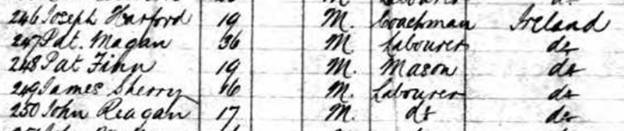 246 Joseph Harford 19 M. Coachman Ireland
247 Pat. Magan 36 M Labourer do
248 Pat Finn 19 M. Mason do
249 James Sherry 16 M. Labourer do
250 John Reagan 17 M. do do